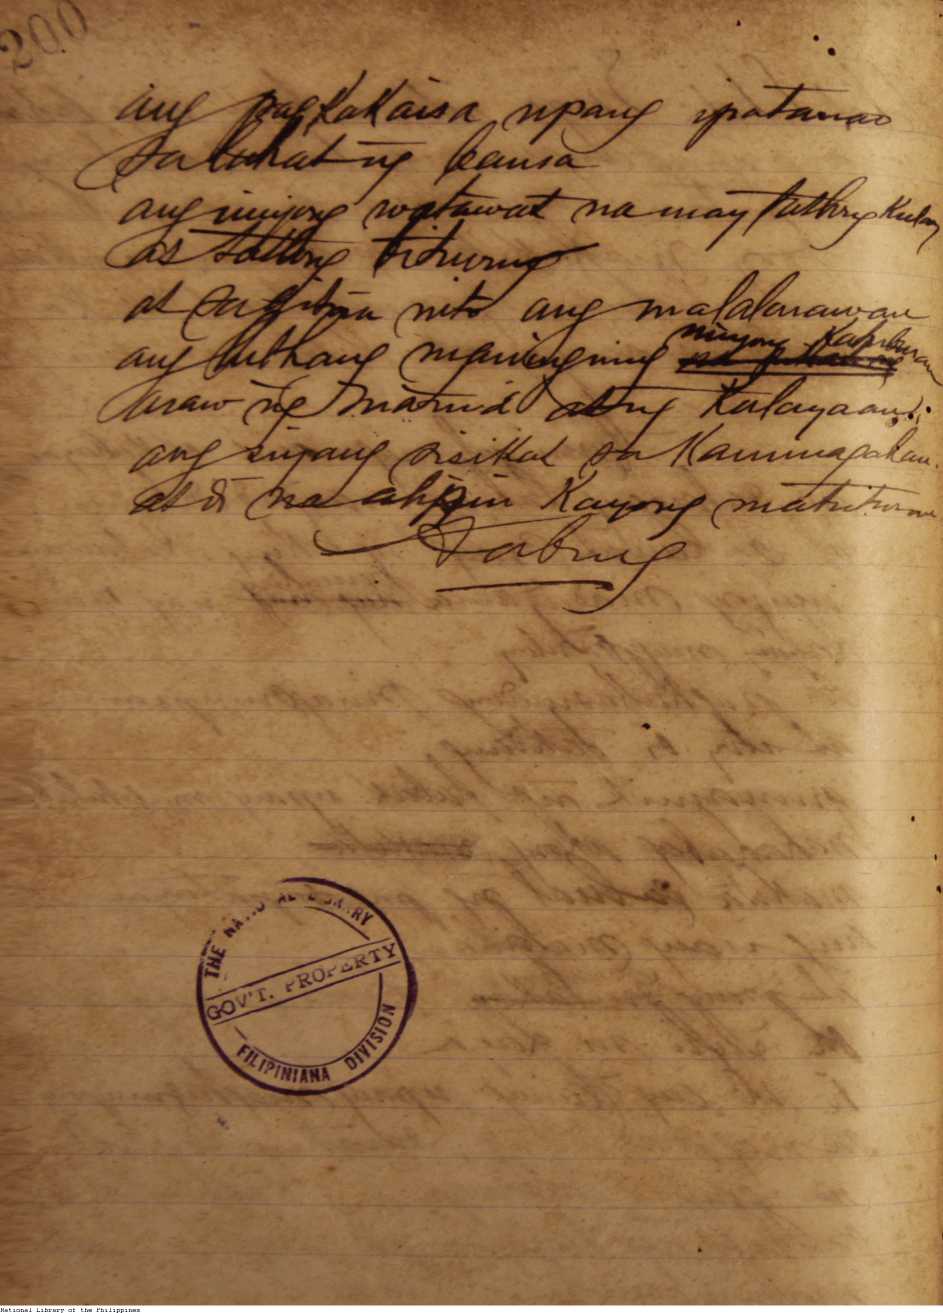 200
ang pagKaKaisa upang ipatanao
sa lahat ng bansa
ang inyong watawat na may tatlong Kulay
at tatlong bituing
at sa gitna nito ang malalarawan
ang buhang maningning ninyong
araw ng Kalayaan
ang siyang sisikat sa Kaminagahan.
at di na alipin Kayong matuturan
THE NATIONAL LIBRARY
GOV'T. PROPERTY
FILIPINIANA DIVISION
National Library of the Philippines